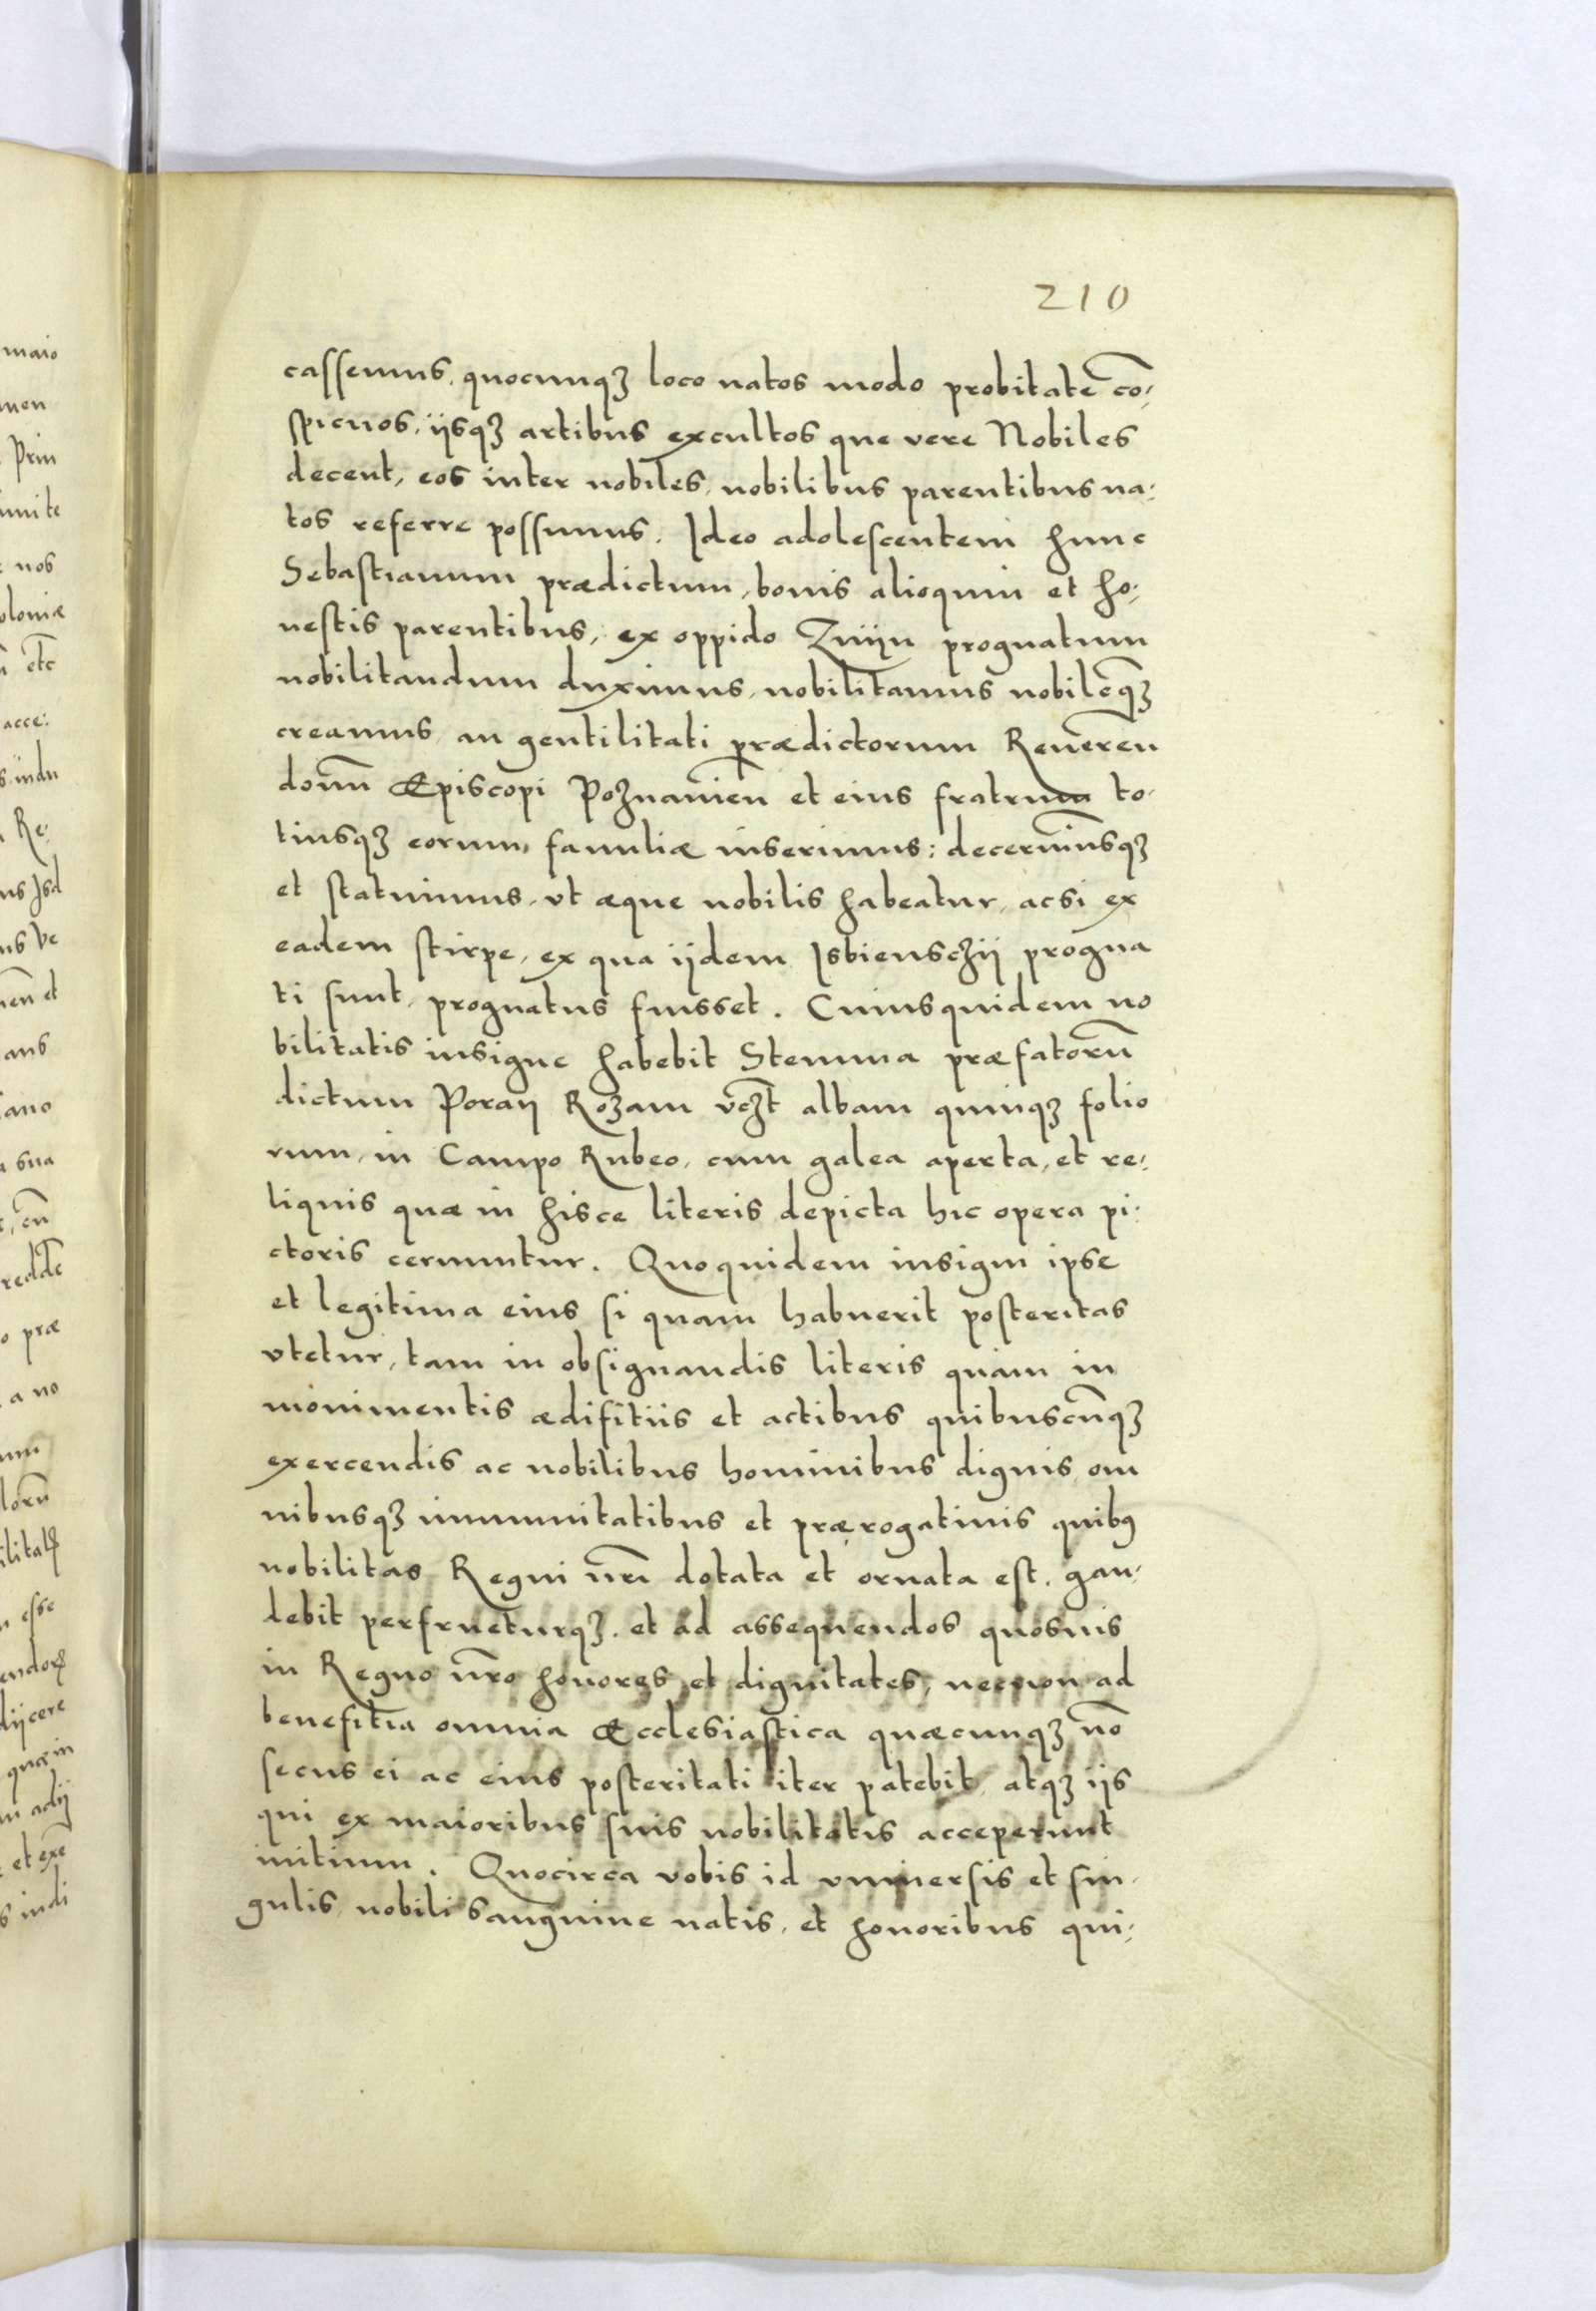 210
cassemus, quocunqꝫ loco natos modo probitate cō-
spicuos, ijsqꝫ artibus excultos que vere Nobiles
decent, eos inter nobiles, nobilibus parentibus na-
tos referre possumus. Ideo adolescentem hunc
Sebastianum prædictum, bonis alioquin et ho-
nestis parentibus, ex oppido Znijn prognatum
nobilitandum duximus, nobilitamus nobilēqꝫ
creamus, an gentilitati prædictorum Reueren
donn Episcopi Poznanien et eius fratrum to-
tiusqꝫ eorum, familiæ inserimus: decernimusqꝫ
et statuimus, vt æque nobilis habeatur, acsi ex
eadem stirpe, ex qua ijdem Isbienschij progna
ti sunt, prognatus fuisset. Cuiusquidem no
bilitatis insigne habebit Stemma præfatorū
dictum Poraij Rozam vꝫt albam quinqꝫ folio
rum, in Campo Rubeo, cum galea aperta, et re-
liquis quæ in hisce literis depicta hic opera pi-
ctoris cernuntur. Quoquidem insigni ipse
et legitima eius si quam habuerit posteritas
vtetur, tam in obsignandis literis quam in
monimentis ædifitiis et actibus quibuscūqꝫ
exercendis ac nobilibus hominibus dignis, om
nibusqꝫ immunitatibus et prærogatiuis quibꝰ
nobilitas Regni nr̄i dotata et ornata est, gau-
debit perfrueturqꝫ, et ad assequendos quosuis
in Regno nr̄o honores et dignitates, necnon ad
benefitia omnia Ecclesiastica quæcunqꝫ nō
secus ei ac eius posteritati iter patebit, atqꝫ ijs
qui ex maioribus suis nobilitatis acceperunt
initium. Quocirca vobis id vniuersis et sin-
gulis, nobili sanguine natis, et honoribus qui-